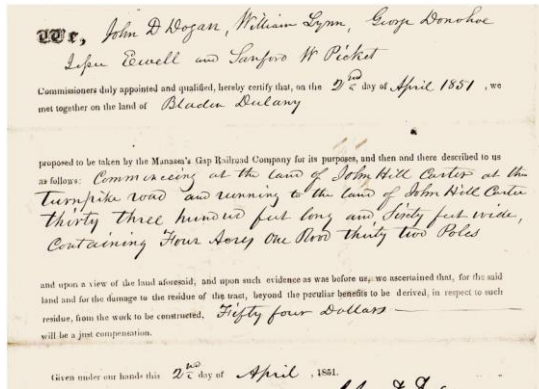 We, John D Dogan, William Lynn, George Donohoe
Jesse Ewell and Sanford W Picket
Commissioners duly appointed and qualified, hereby certify that, on the 2nd day of April 1851, we
met together on the land of Bladen Dulany
proposed to be taken by the Manassa's Gap Railroad Company for its purposes, and then and there described to us
as follows: Commenceing at the land of John Hill Carter at the
turnpike road and running to the land of John Hill Carter
thirty three hundred feet long and, Sixty feet wide,
Containing Four Acres One Rood thirty two Poles
and upon a view of the land aforesaid, and upon such evidence as was before us, we ascertained that, for the said
land and for the damage to the residue of the tract, beyond the peculiar benefits to be derived, in respect to such
residue, from the work to be constructed, Fifty four Dollars
will be a just compensation.
Given under our hands this 2nd day of April, 1851.